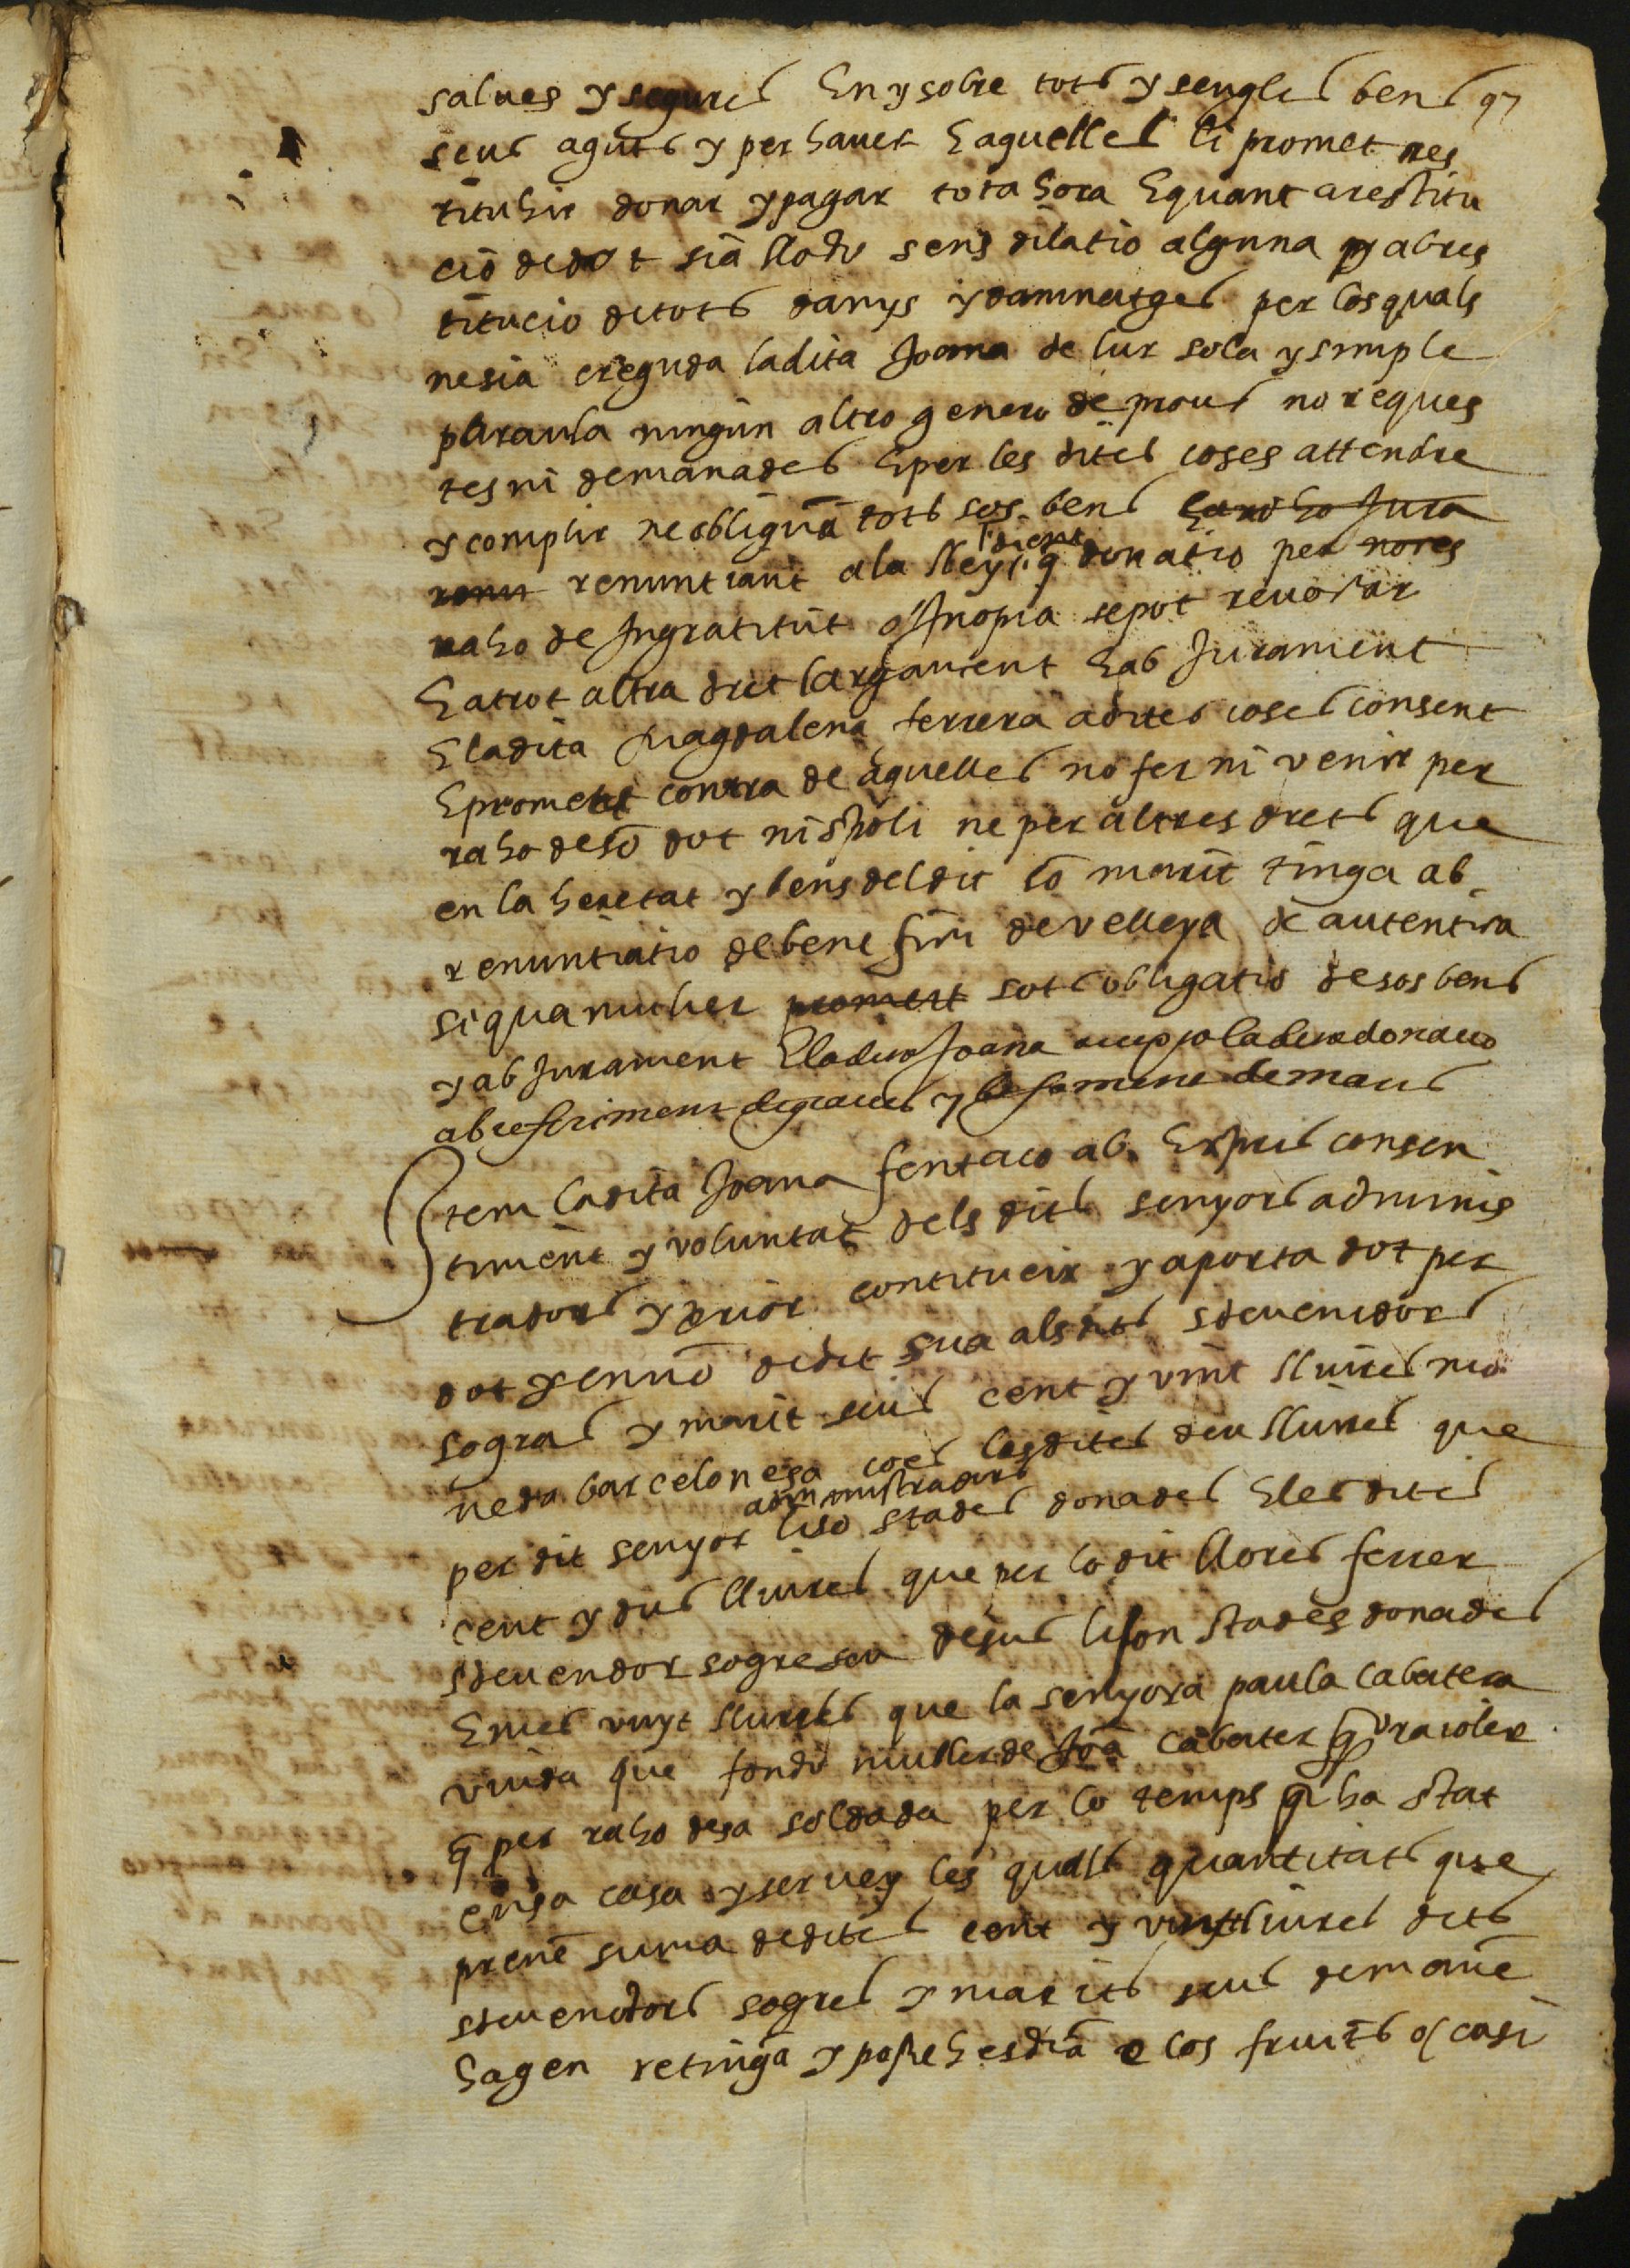 salves y segures En y sobre tots y sengles bens q
seus aguts y per haver E aquelles li promet res
tituhir donar y pagar tota hora E quant a restitu
cio de dot sia lloch sens dilatio alguna y ab res
titucio de tots danys y damnatges per los quals
ne sia creguda la dita Joana de lur sola y simple
paraula ningun altro genero de proves no reques
tes ni demanades E per les dites coses attendre
y complir ne obligua tots sos bens
renuntiant a la lley dient q donatio per
raho de Ingratitut o Inopia se pot revocar
E a tot altra dret largament E ab Jurament
E la dita Magdalena ferrera a dites coses consent
E promet contra de aquelles no fer ni venir per
raho de so dot ni spoli ne per altres drets que
en la heretat y bens del dit so marit tinga ab
renuntiatio de benefini de velleya & autentica
si qua mulier promett sots obligatio de sos bens
y ab Jurament E la dita Joana accepta la dita donatio
ab referiment de gracies y besament de mans
Item la dita Joana fent aco ab Expres consen
timent y voluntat dels dits senyors adminis
tradors y prior contitueix y aporta dot per
dot y en no de dot sua als dits sdevenidors
sogres y marit seus cent y vint lliures mo
neda barcelonesa coes les dites deu lliures que
per dit senyor administradors li so stades donades E les dites
cent y dos lliures que per lo dit llores ferrer
sdevendor sogre seu desus li son stades donades
E mes vuyt lliures que la senyora paula Cabatera
viuda que fonch muller de Joa Cabater q vraioler
q per raho desa soldada per lo temps q ha stat
en sa casa y servey les quals quantitats que
prene suma de dites cent y vint lliures dits
sdevenidors sogres y marits seus demane
hagen retinga y possehesca e los fruits